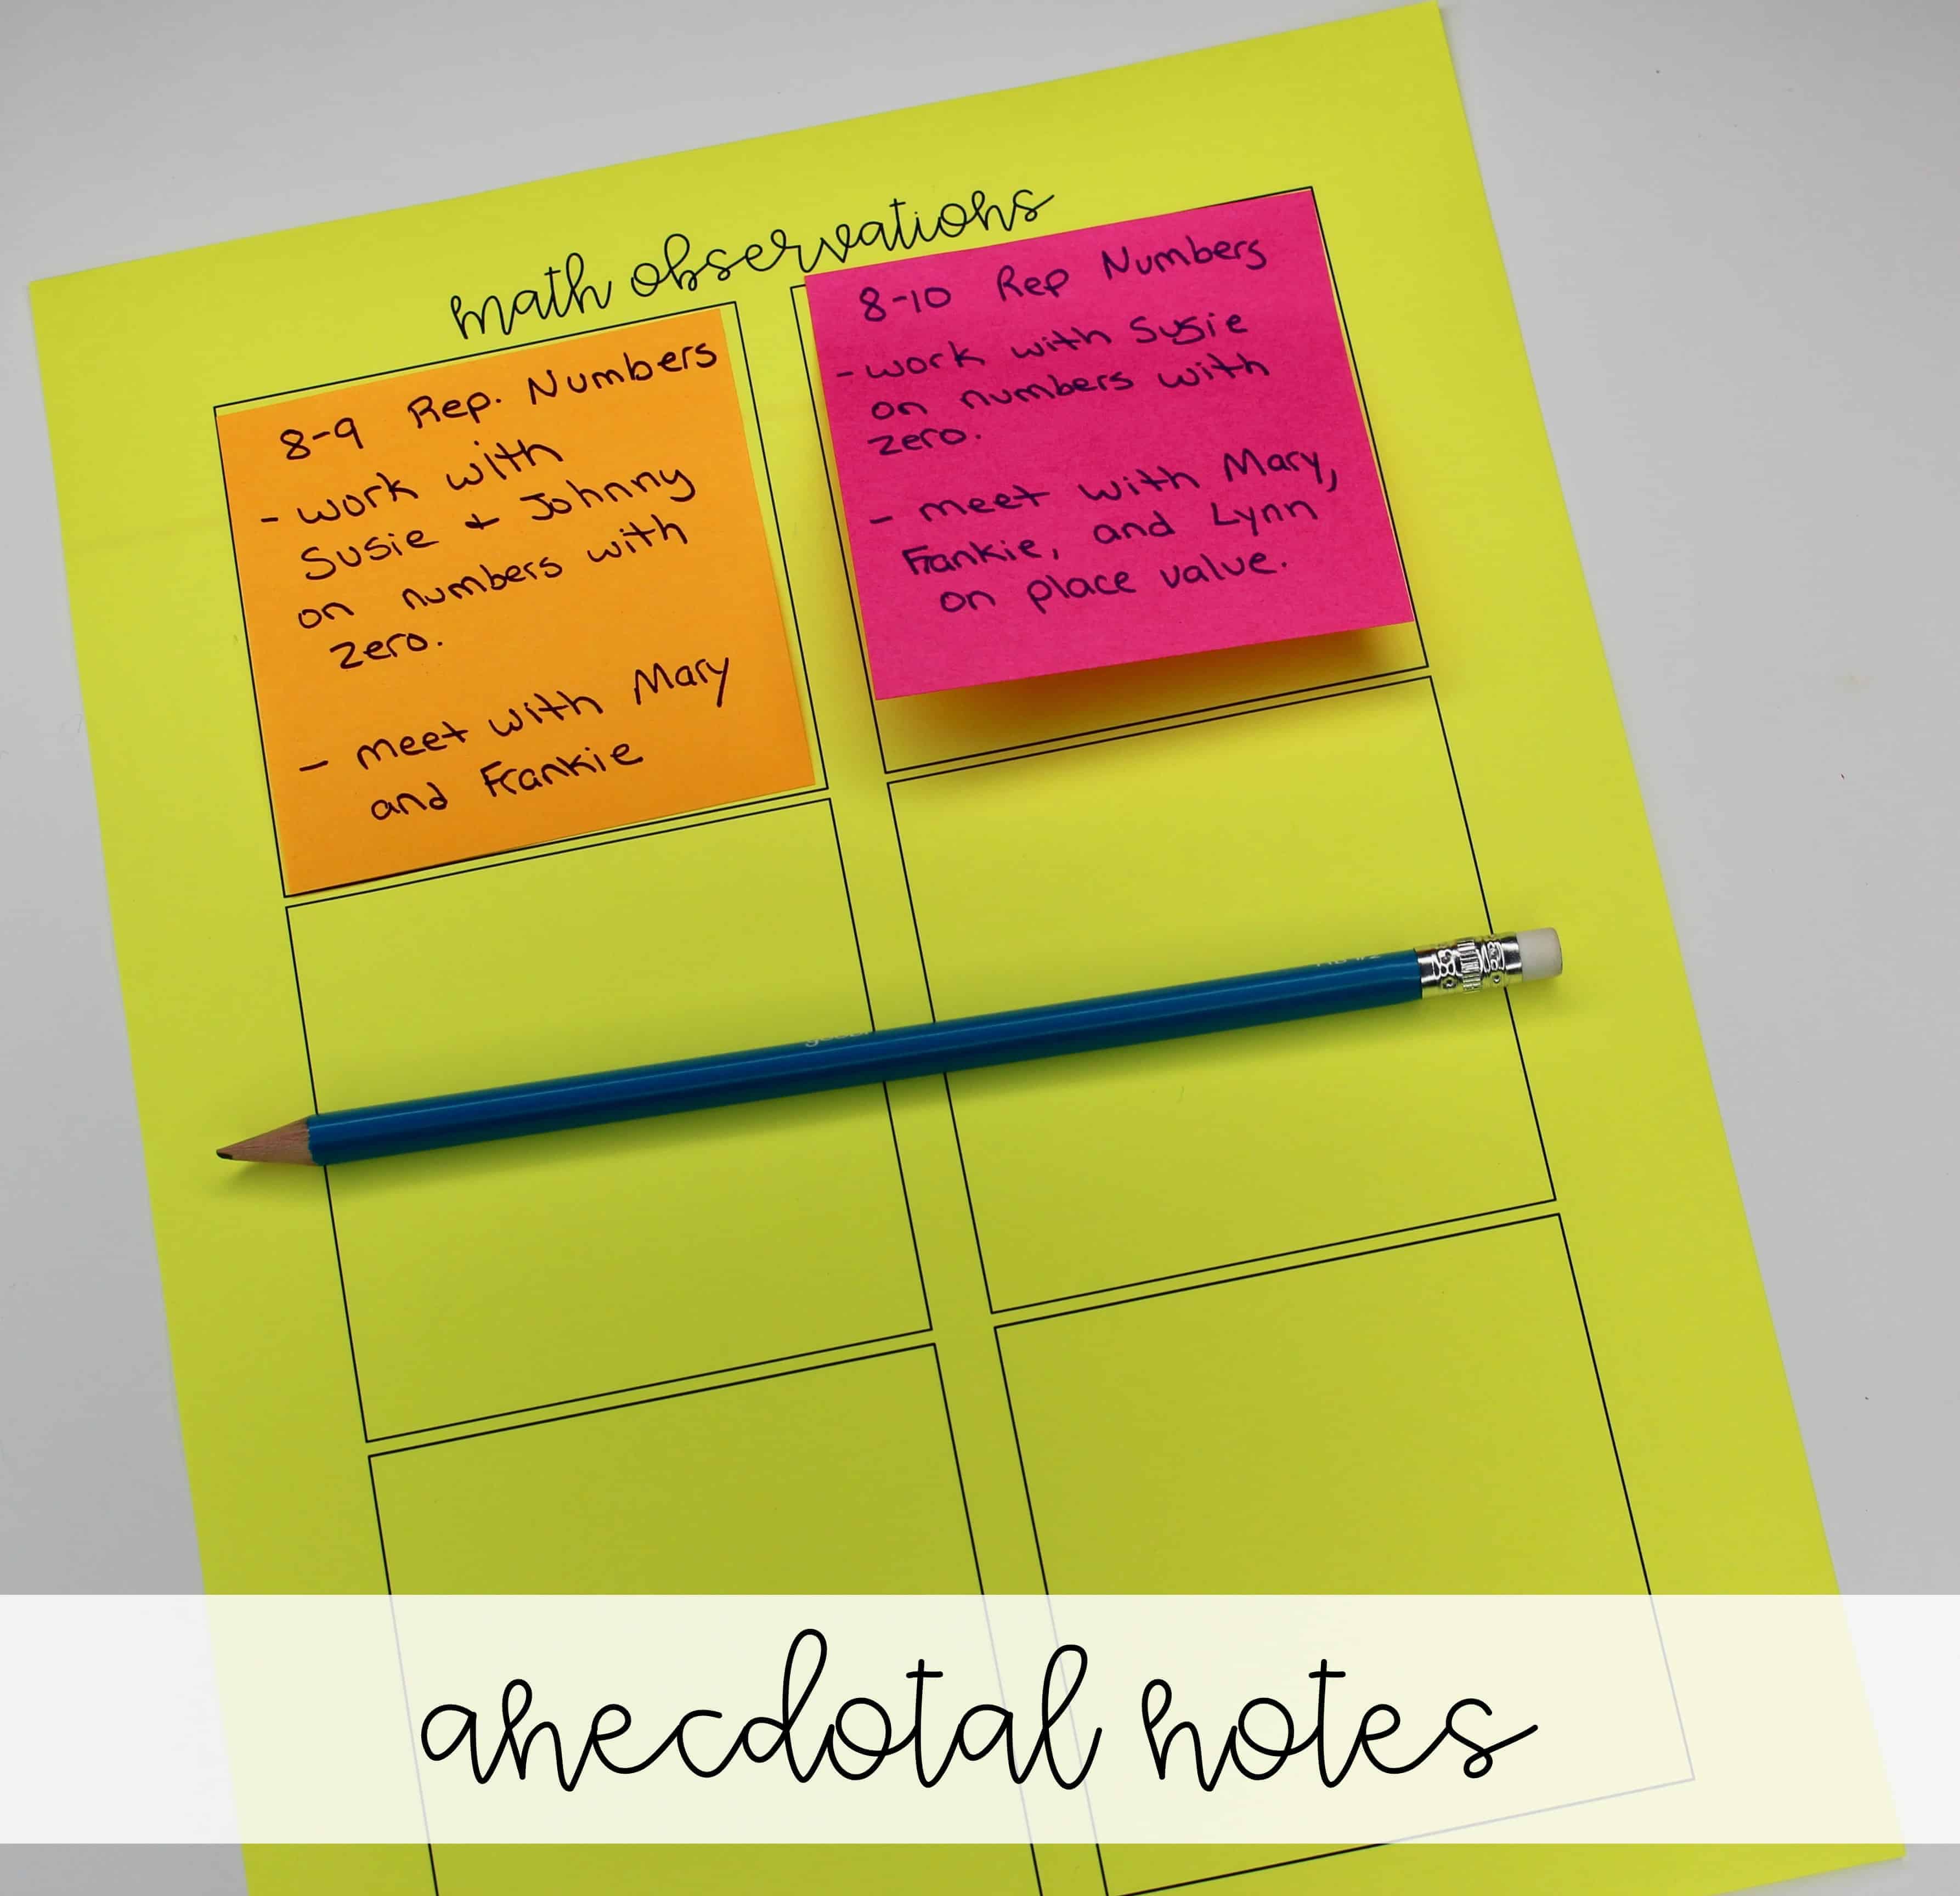 math observations
8-9 Rep. Numbers
- work with
Susie + Johnny
on numbers with
zero.
- meet with Mary
and Frankie
8-10 Rep Numbers
- work with Susie
on numbers with
zero.
- meet with Mary,
Frankie, and Lynn
on place value.
anecdotal notes